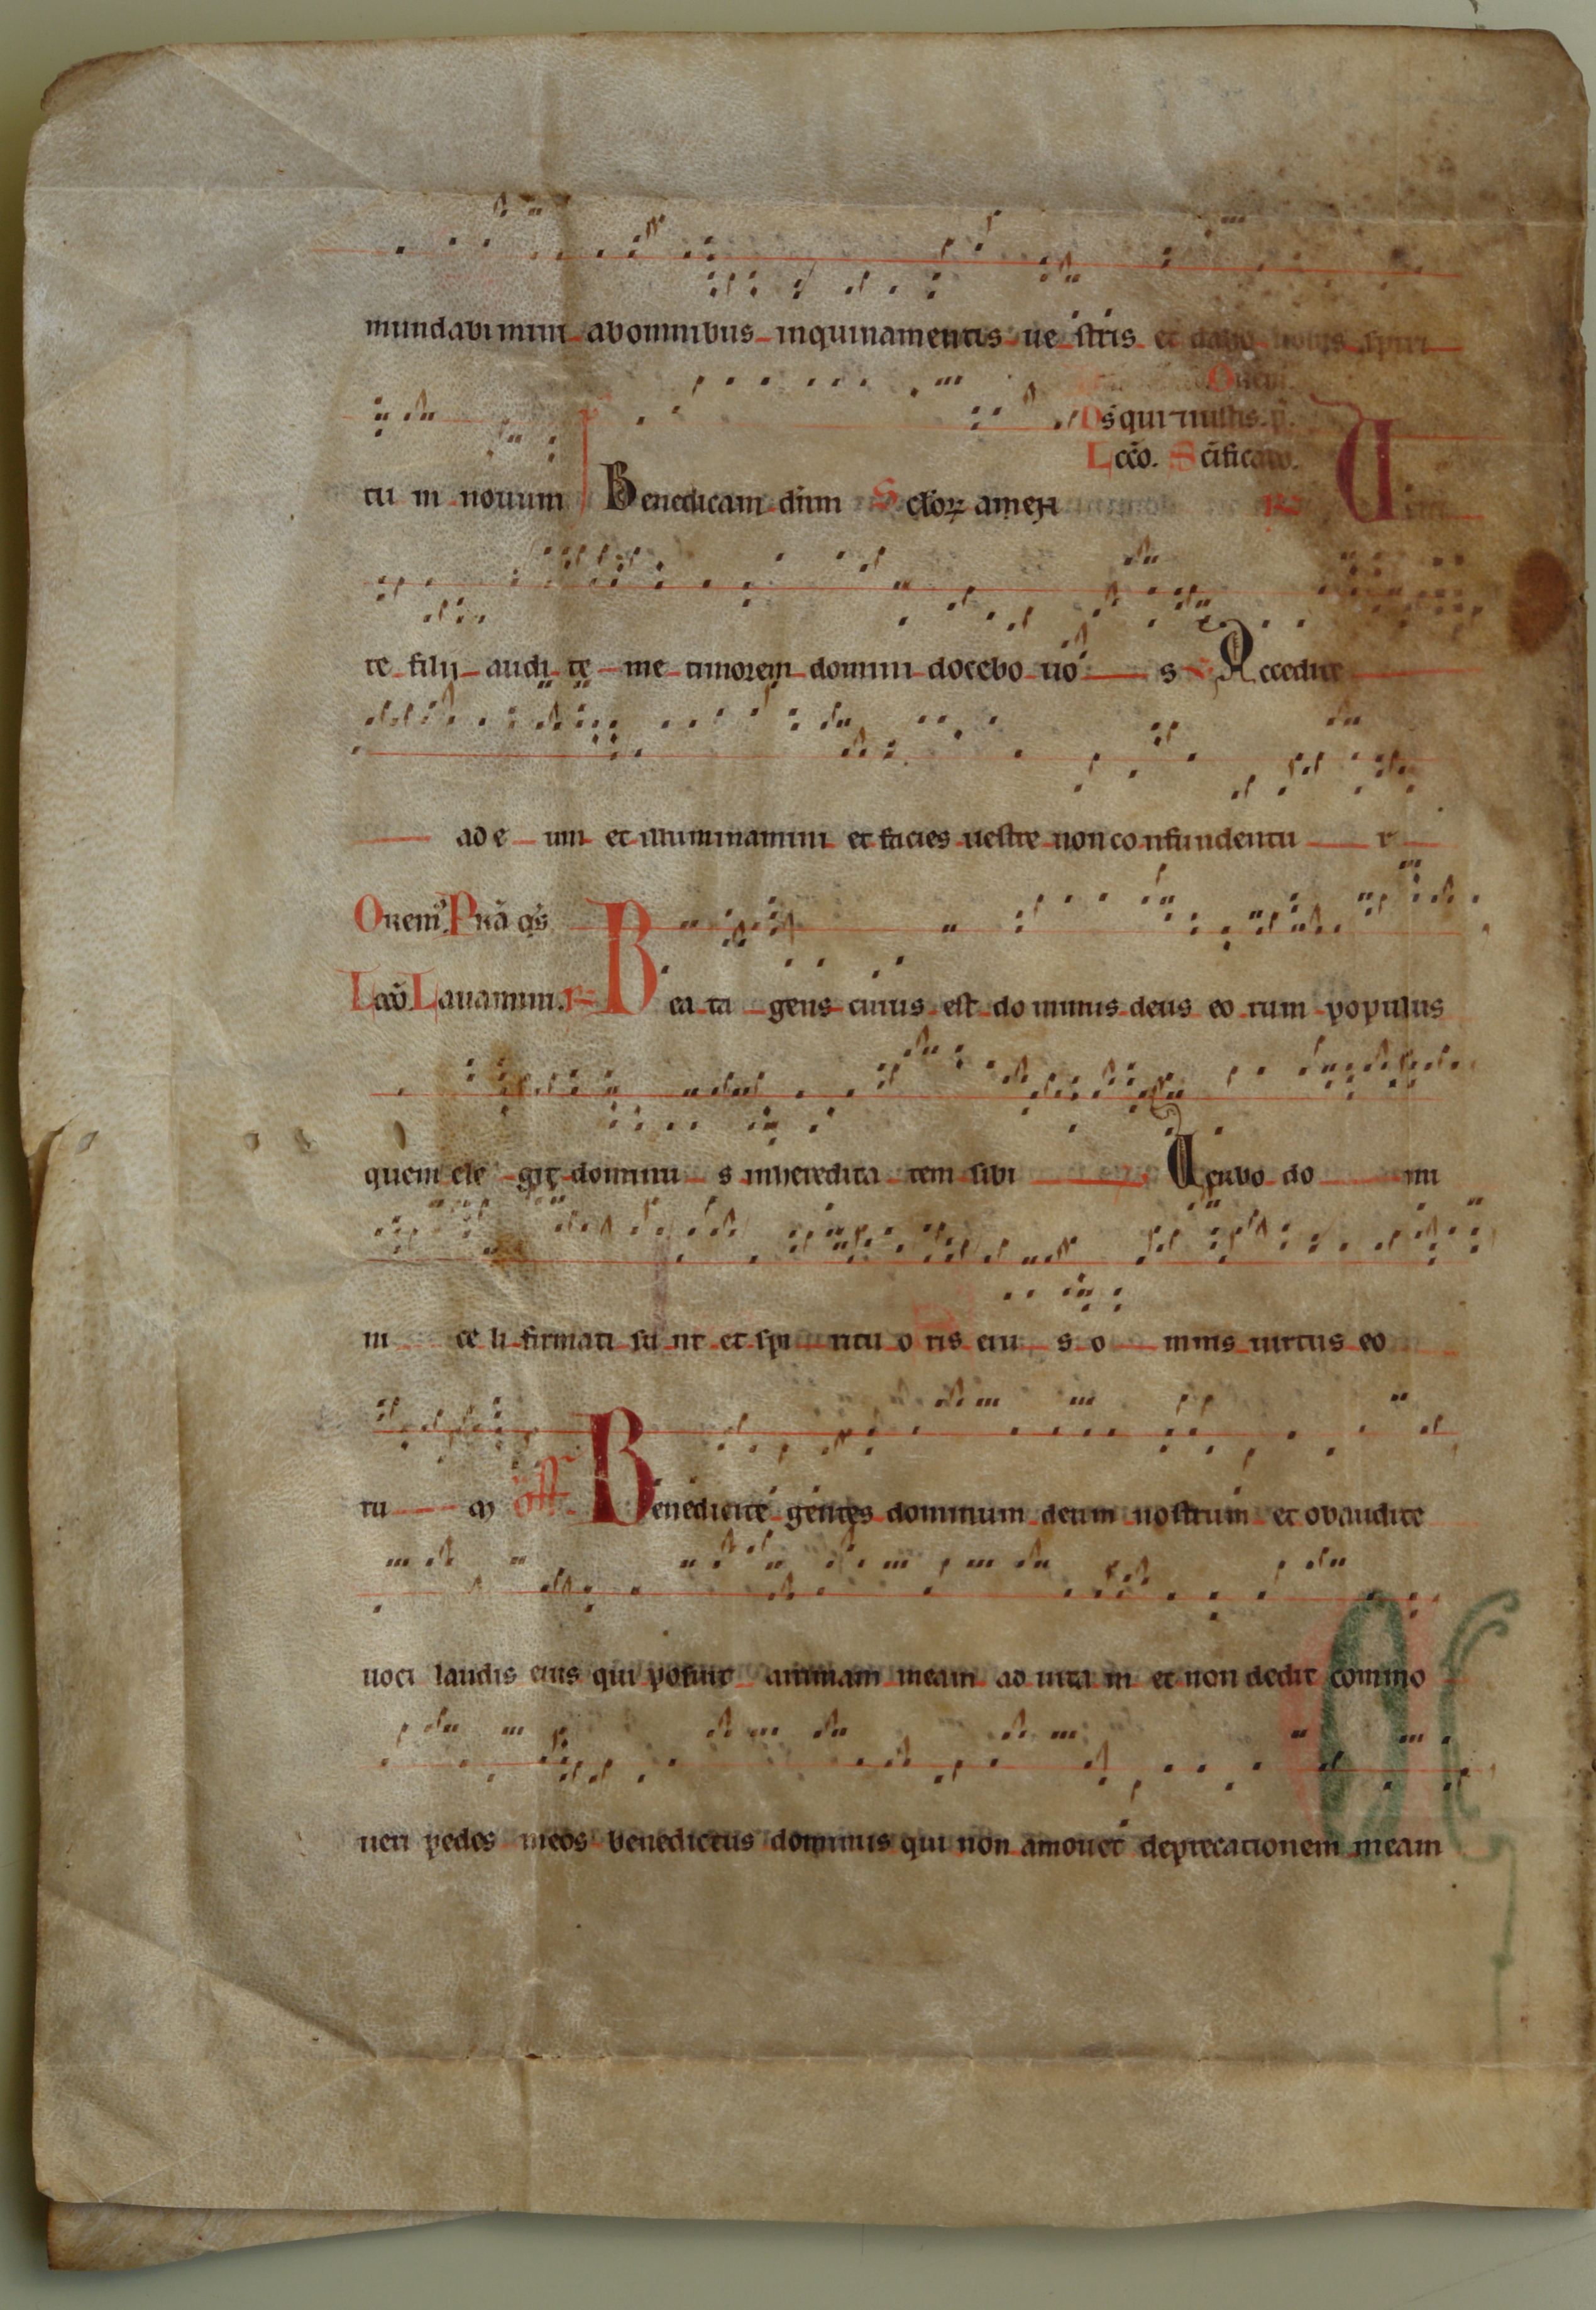 mundabimini abomnibus inquinamentis ue stris et dabo uobis spiri
Orem.
Ds̄ qui nullis.
Lcc̄o. Sc̄ificabo.
tu m nouum Benedicam dn̄m Sclōꝝ amen R Ueni
te filij audi te me timorem domini docebo uo s Accedite
ad e um et illuminamini et facies uestre non co nfundentu r
Orem⁹. Pr̄a q̄s
Lcc̄o. Lauamini. R Bea ta gens cuius est do minus deus eo rum populus
quem ele git dominu s inheredita tem sibi Uerbo do mi
ni ce li firmati su nt et spi ritu o ris eiu s o mnis uirtus eo
ru m off. Benedicite gentes dominum deum nostrum et obaudite
uoci laudis eius qui posuit animam meam ad uita m et non dedit commo
ueri pedes meos benedictus dominus qui non amouet deprecationem meam